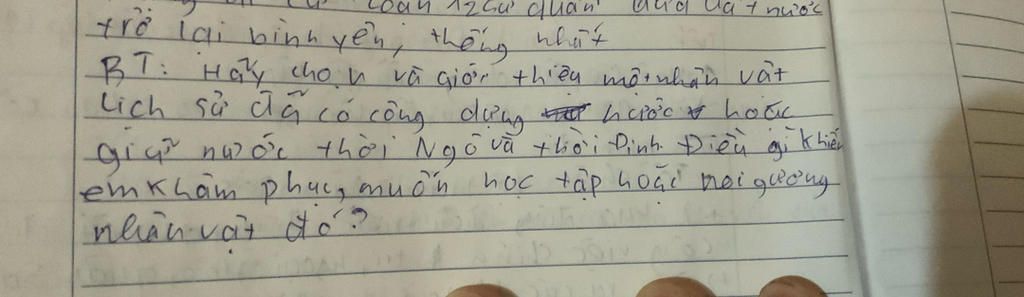 loạn 12 sứ quân đưa đất nước
trở lại bình yên, thống nhất
BT: Hãy chọn và giới thiệu một nhân vật
Lịch sử đã có công dựng nước hoặc
giữ nước thời Ngô và thời Đinh. Điều gì khiến
em khâm phục, muốn học tập hoặc noi gương
nhân vật đó?